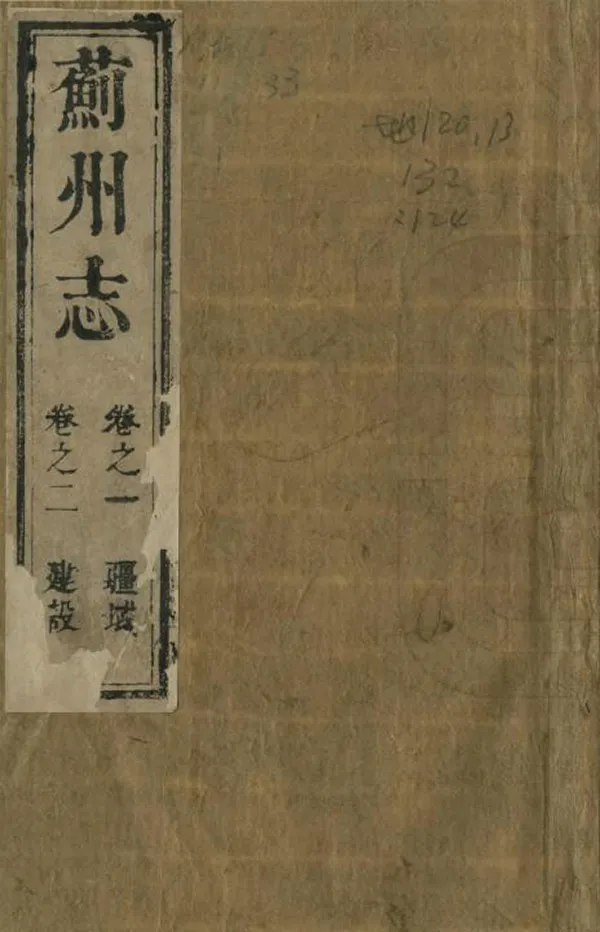 薊州志
卷之一 疆域
卷之二 建設
33
地120.13
132
2124